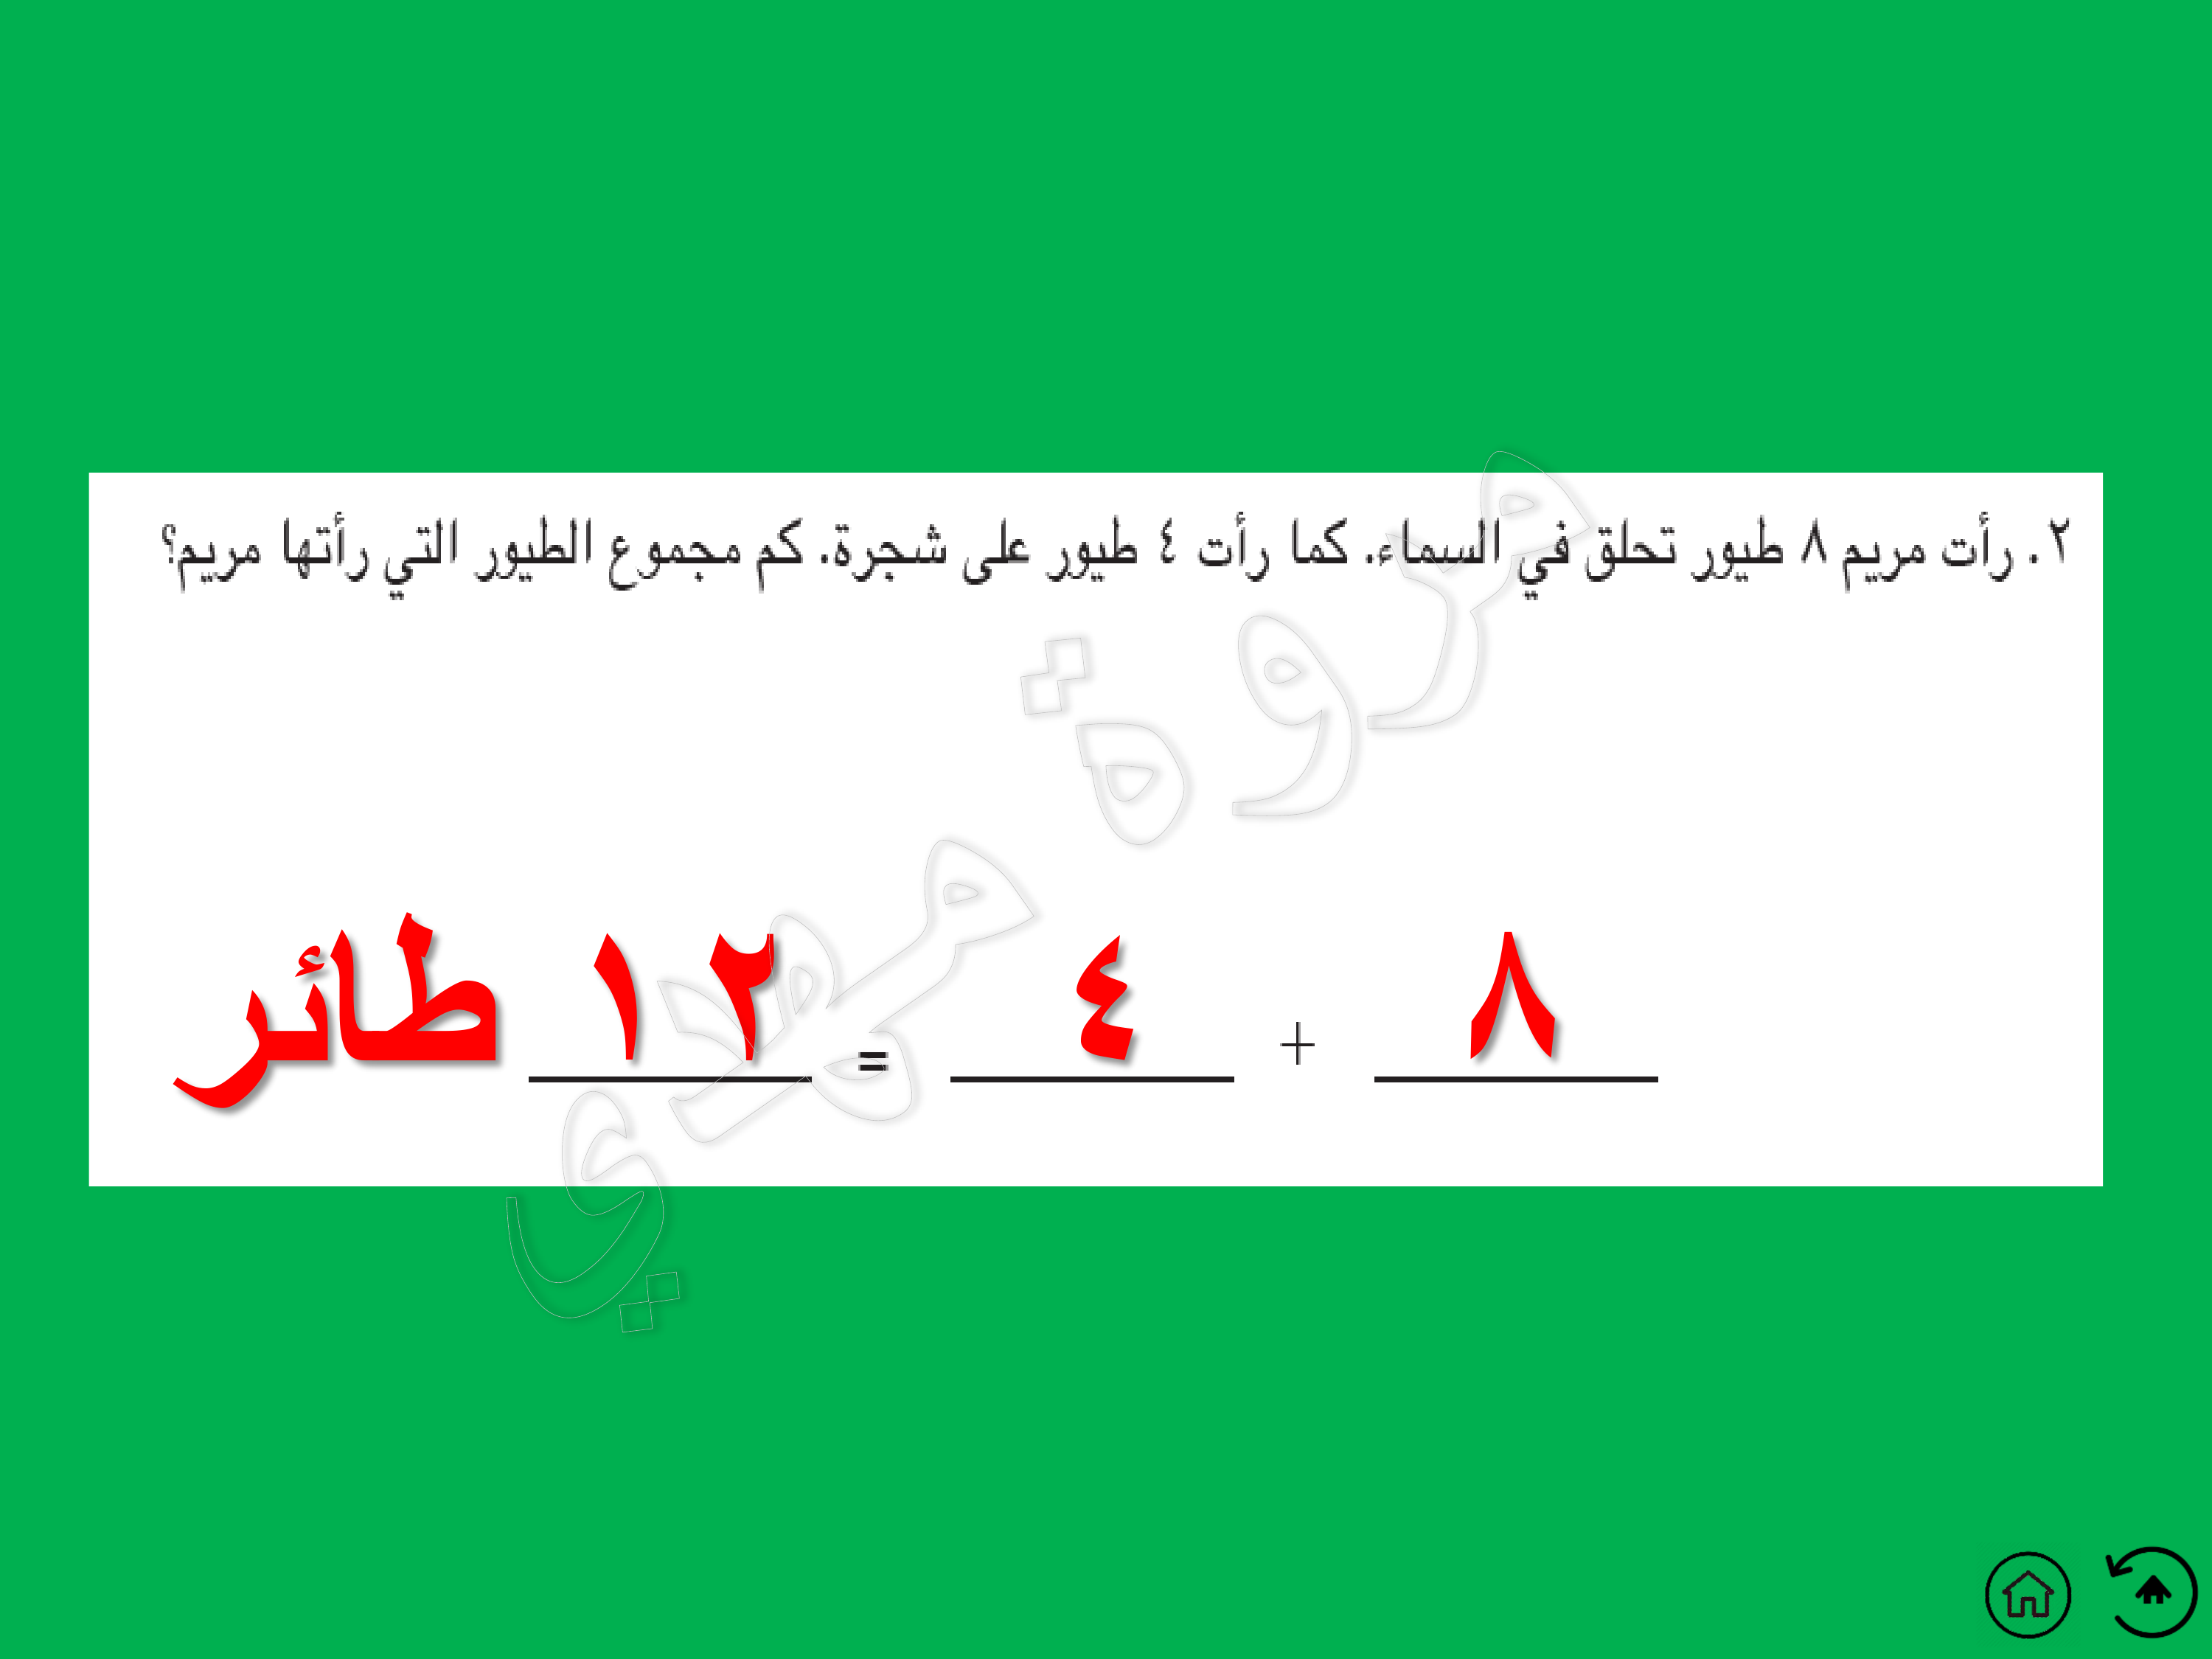 ٢. رأت مريم ٨ طيور تحلق في السماء. كما رأت ٤ طيور على شجرة. كم مجموع الطيور التي رأتها مريم؟
٨ + ٤ = ١٢ طائر
مروة مهدلاي